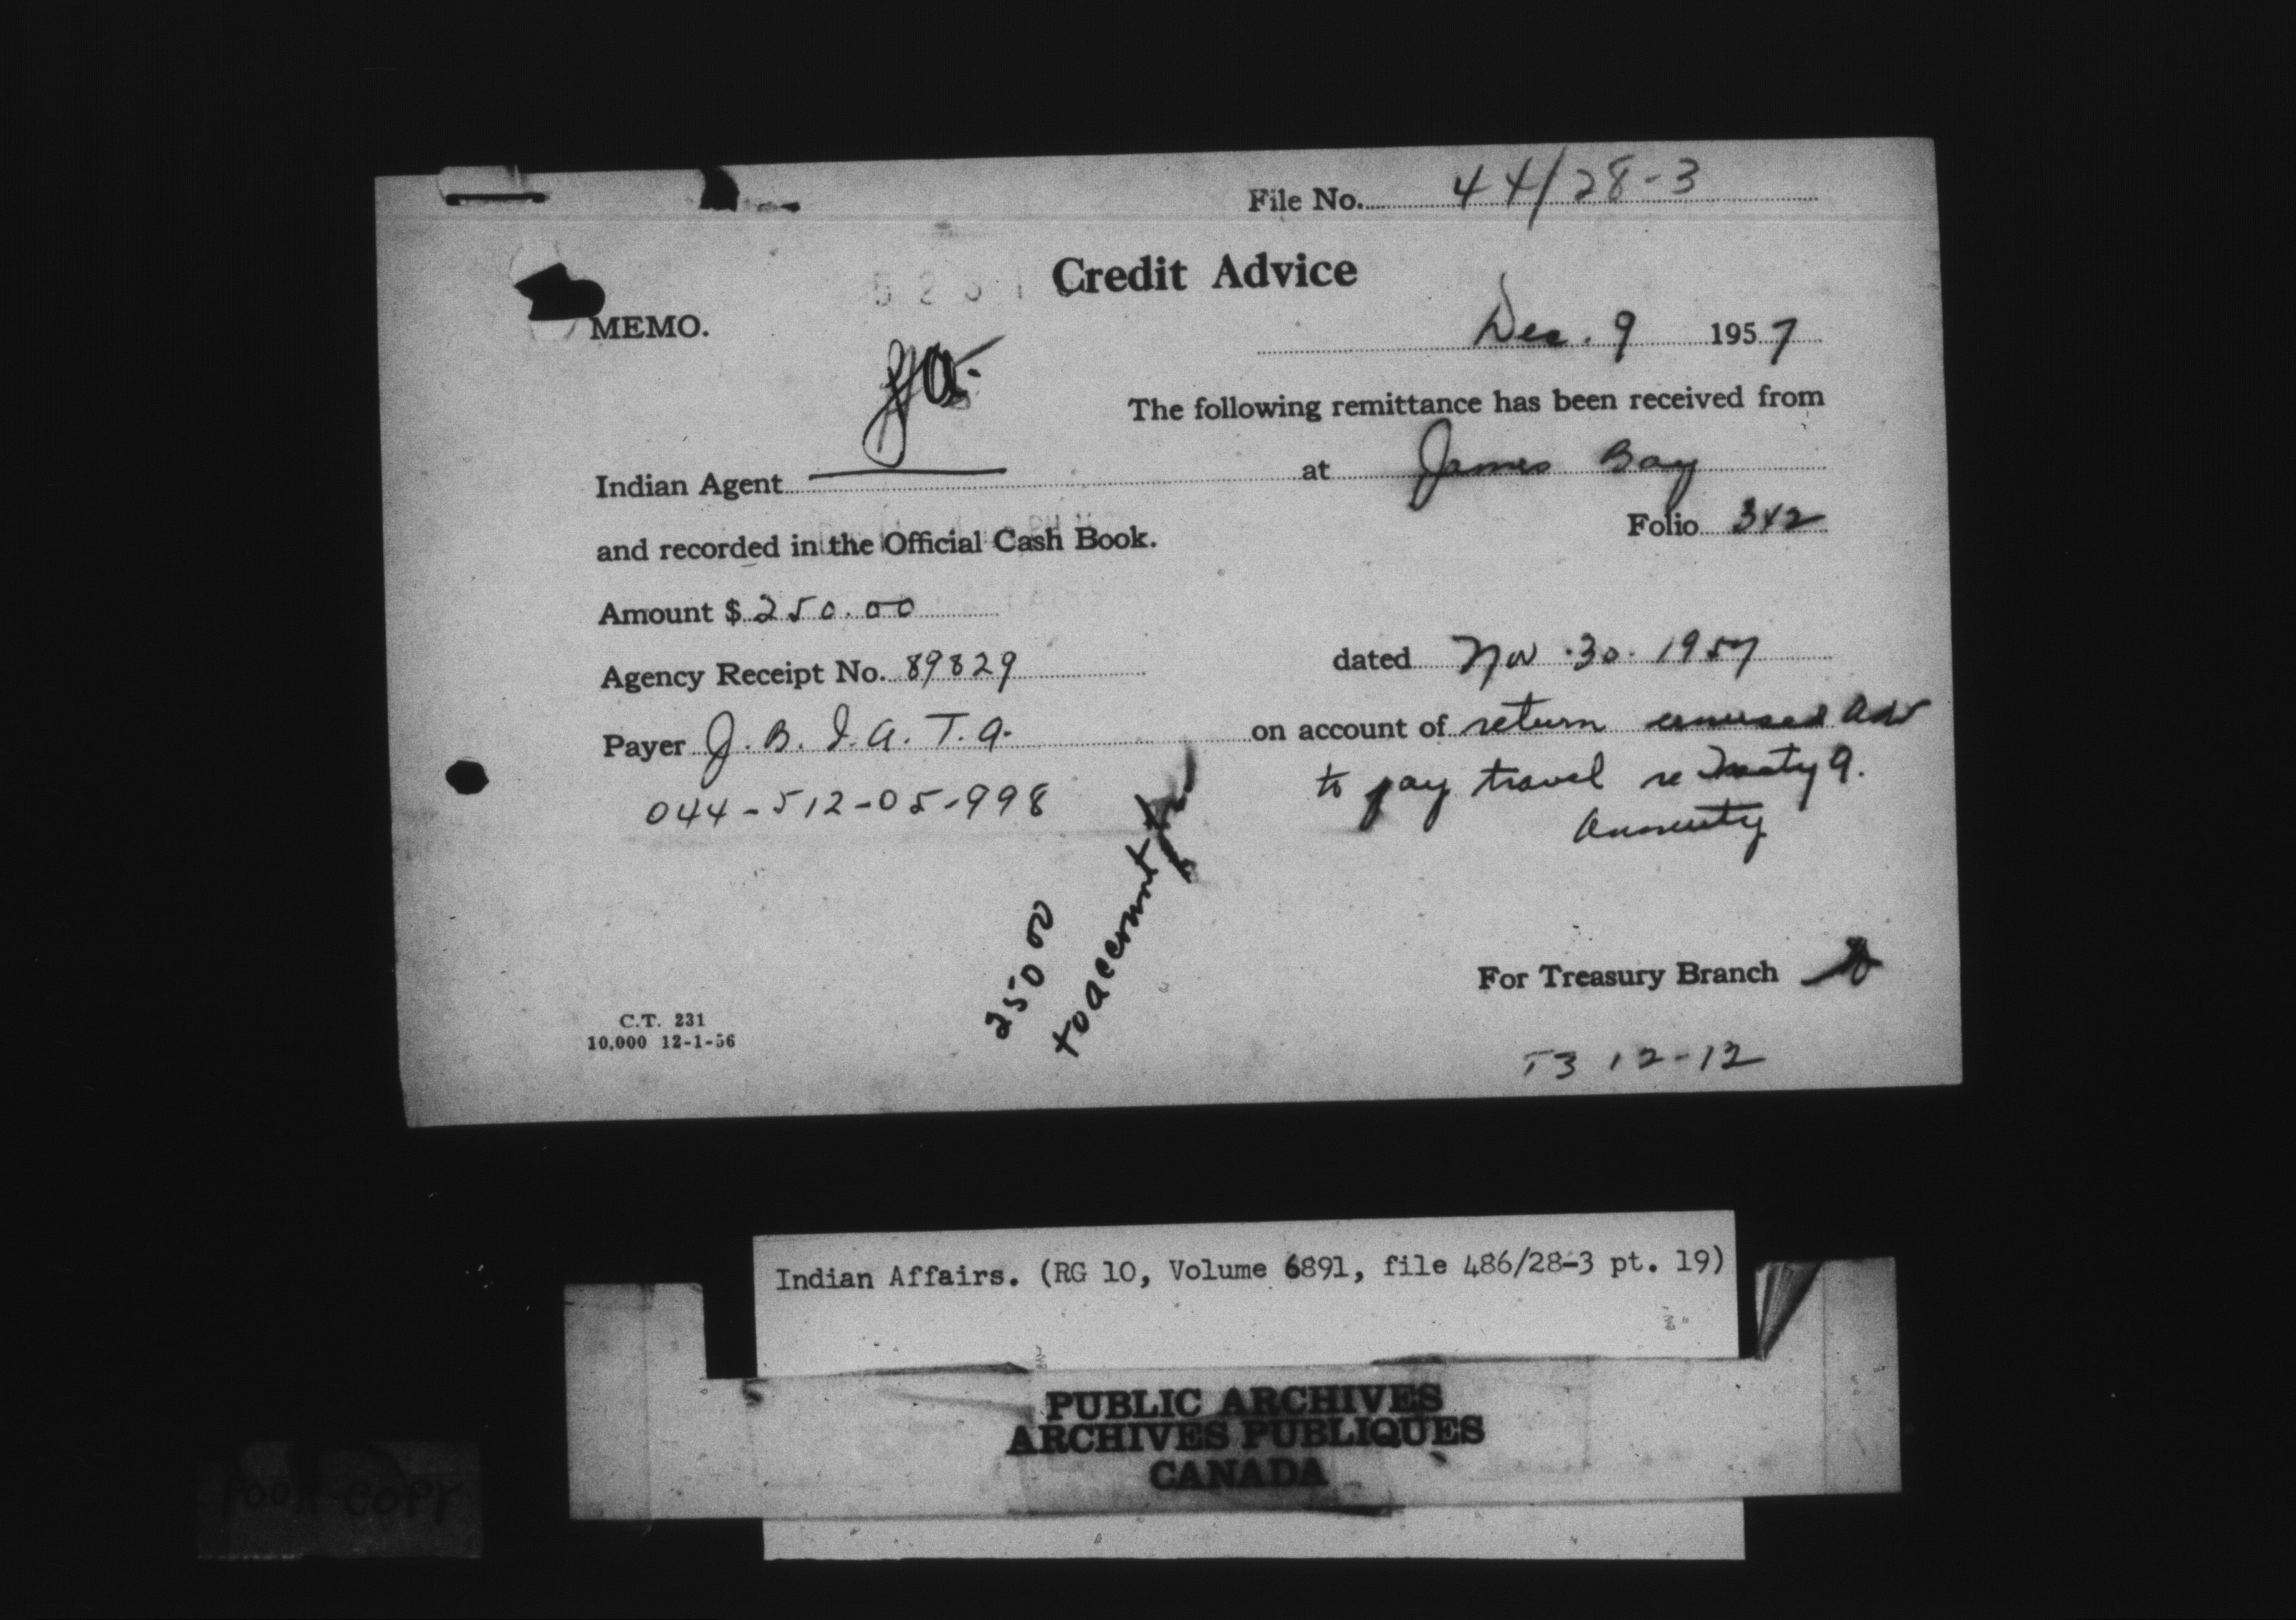 File No. 44/28-3
Credit Advice
MEMO.
Dec. 9 1957
The following remittance has been received from
Indian Agent at James Bay
and recorded in the Official Cash Book. Folio 342
Amount $ 250.00
Agency Receipt No. 89829 dated Nov. 30. 1957
Payer J. B. I. A. T. A. on account of return unused adv
044-512-05-998 to pay travel re Treaty 9.
Annuity
250 00
to account for
For Treasury Branch
C.T. 231
10,000 12-1-56
12-12
Indian Affairs. (RG 10, Volume 6891, file 486/28-3 pt. 19)
PUBLIC ARCHIVES
ARCHIVES PUBLIQUES
CANADA
POOR COPY